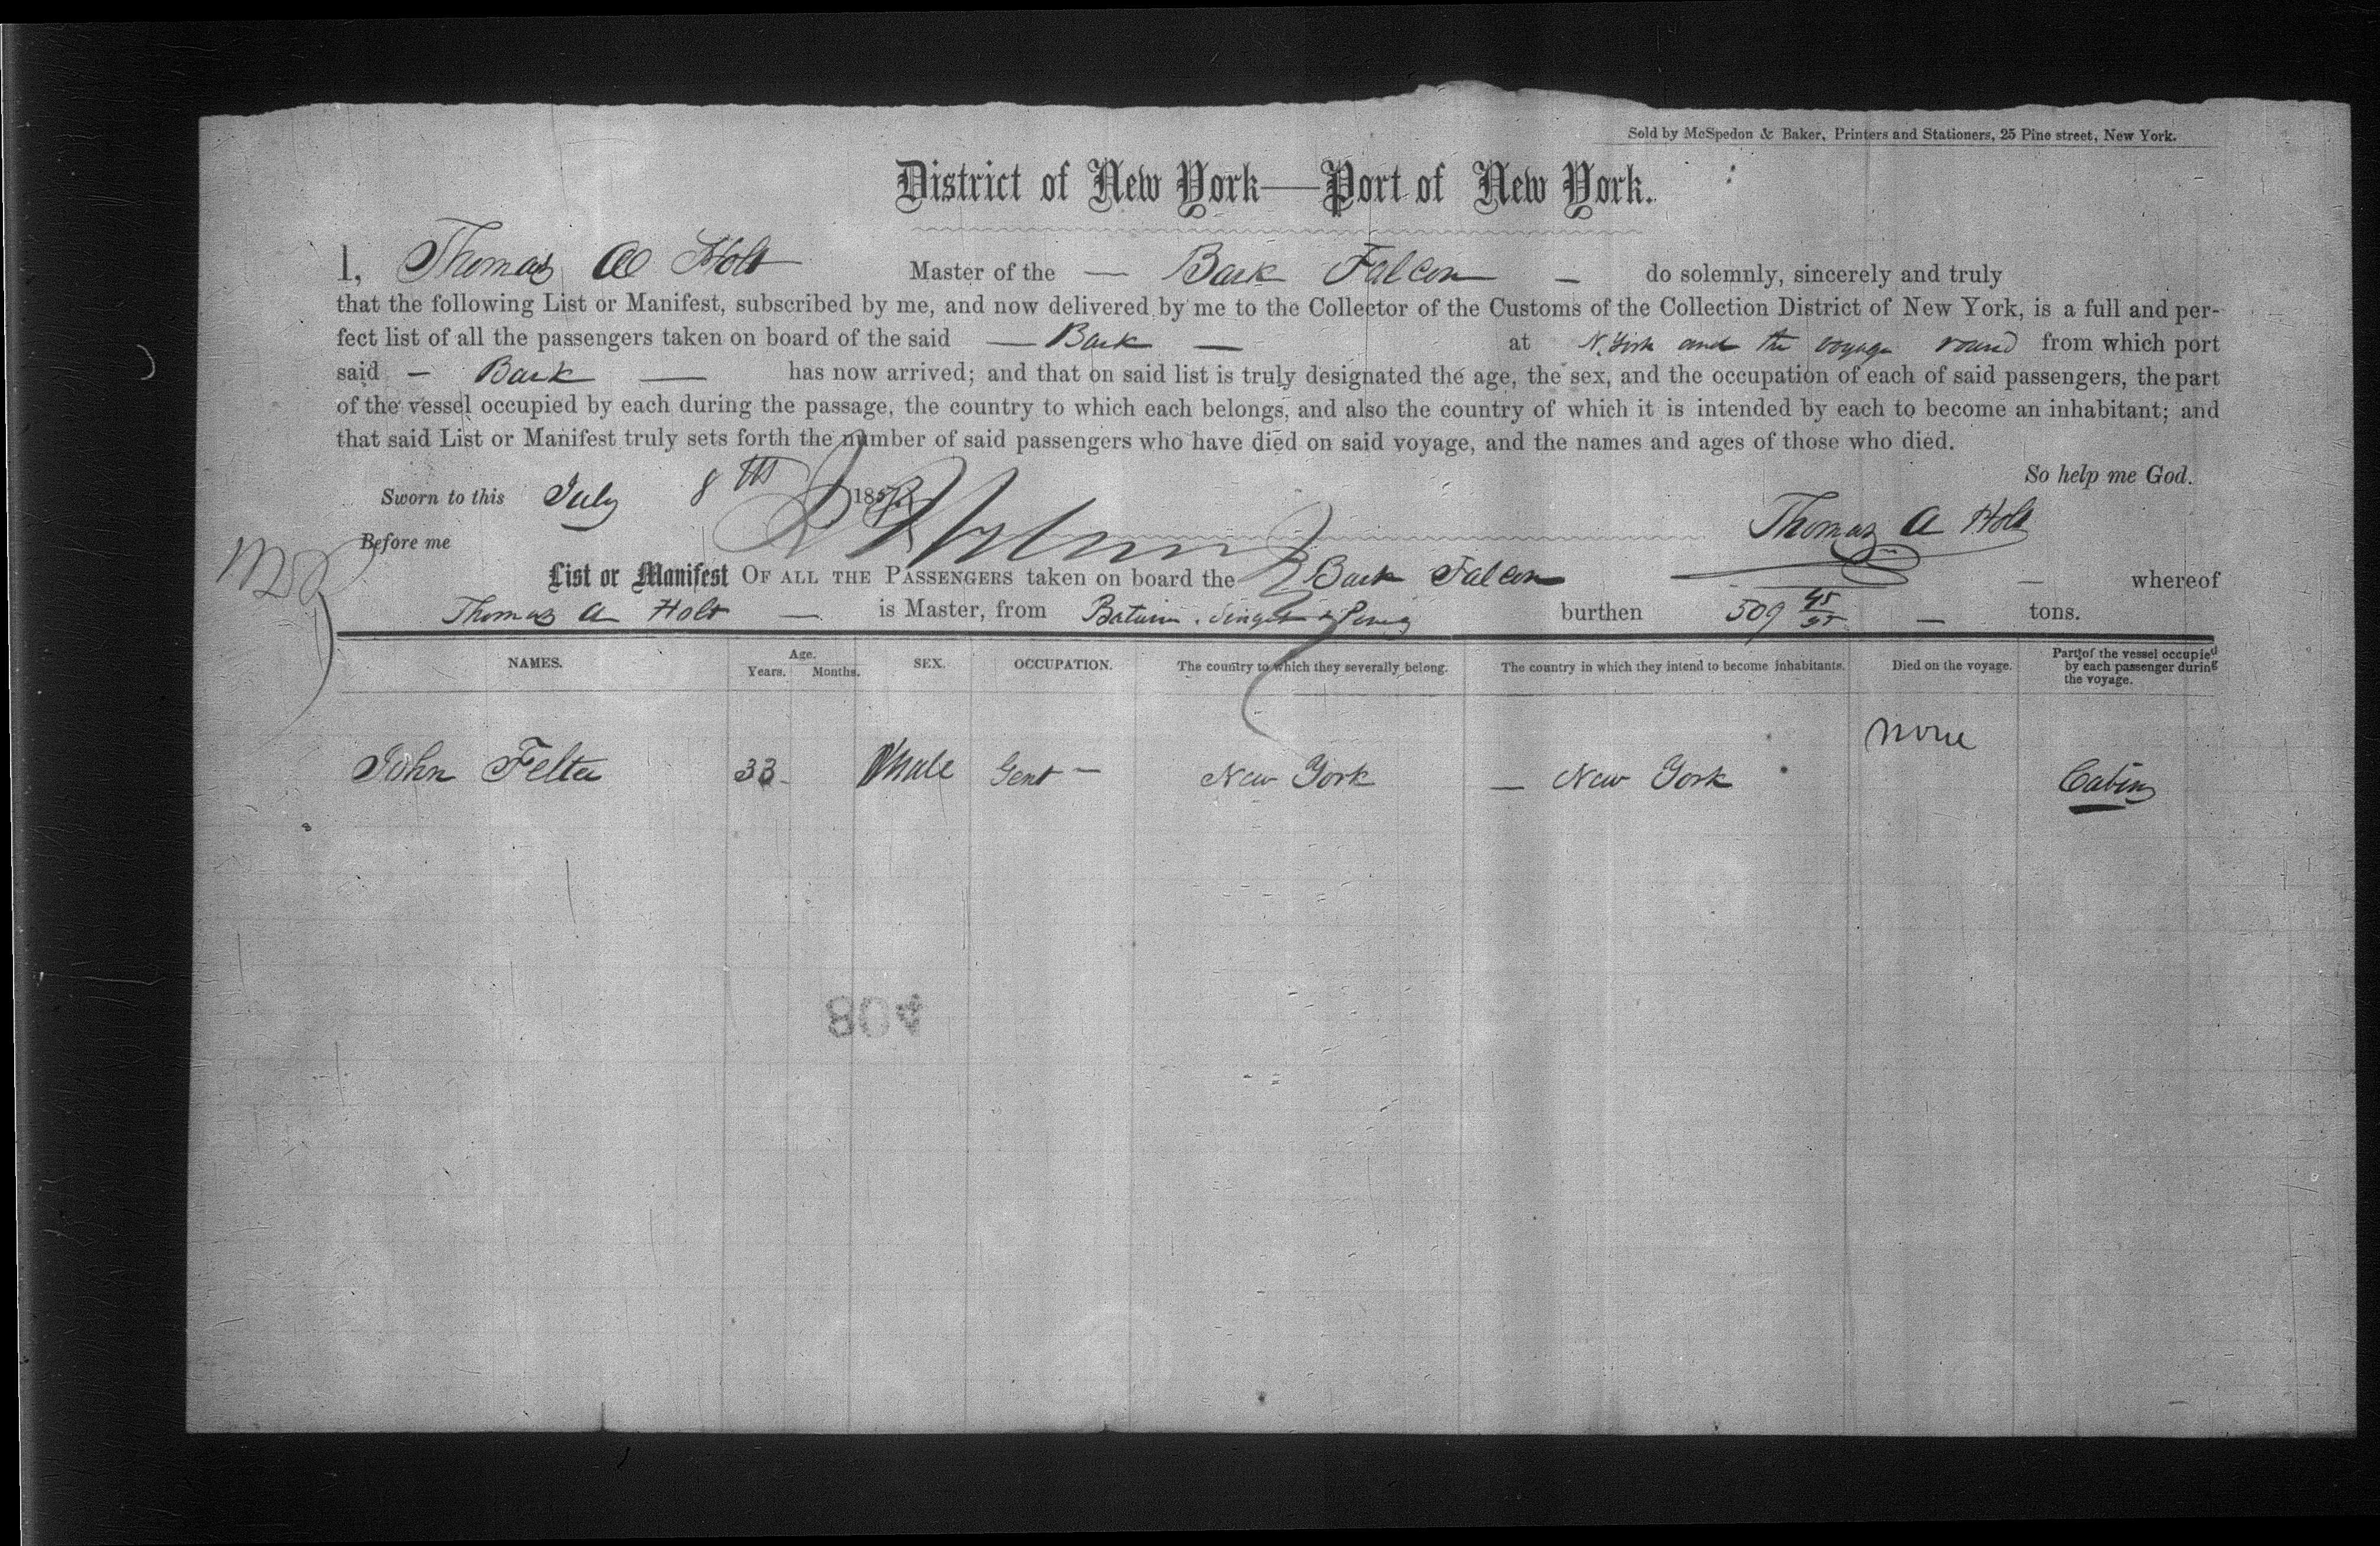 Sold by McSpedon & Baker, Printers and Stationers, 25 Pine street, New York.
District of New York—Port of New York.
I, Thomas A Holt Master of the — Bark Falcon — do solemnly, sincerely and truly
that the following List or Manifest, subscribed by me, and now delivered by me to the Collector of the Customs of the Collection District of New York, is a full and per-
fect list of all the passengers taken on board of the said — Bark — at N. York and the voyage round from which port
said — Bark — has now arrived; and that on said list is truly designated the age, the sex, and the occupation of each of said passengers, the part
of the vessel occupied by each during the passage, the country to which each belongs, and also the country of which it is intended by each to become an inhabitant; and
that said List or Manifest truly sets forth the number of said passengers who have died on said voyage, and the names and ages of those who died.
So help me God.
Sworn to this July 8th 185
Thomas A Holt
Before me
List or Manifest OF ALL THE PASSENGERS taken on board the Bark Falcon — whereof
Thomas A Holt — is Master, from burthen 509 45/95 — tons.
NAMES. Age. Years. Months. SEX. OCCUPATION. The country to which they severally belong. The country in which they intend to become inhabitants. Died on the voyage. Part of the vessel occupied by each passenger during the voyage.
none
John Felter 33 Male Gent — New York — New York Cabin
804